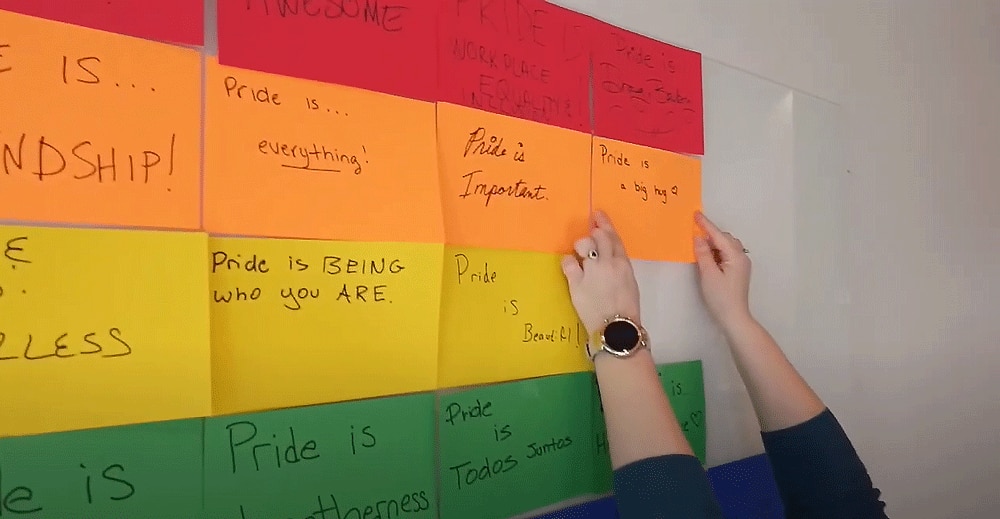 AWESOME
PRIDE IS
WORKPLACE
EQUALITY &
Pride is
IS...
NDSHIP!
Pride is...
everything!
Pride is
Important.
Pride is
a big hug ♡
&
LESS
Pride is BEING
who you ARE.
Pride
is
Beautiful!
is
Pride is
Pride
is
Todos Juntos
is